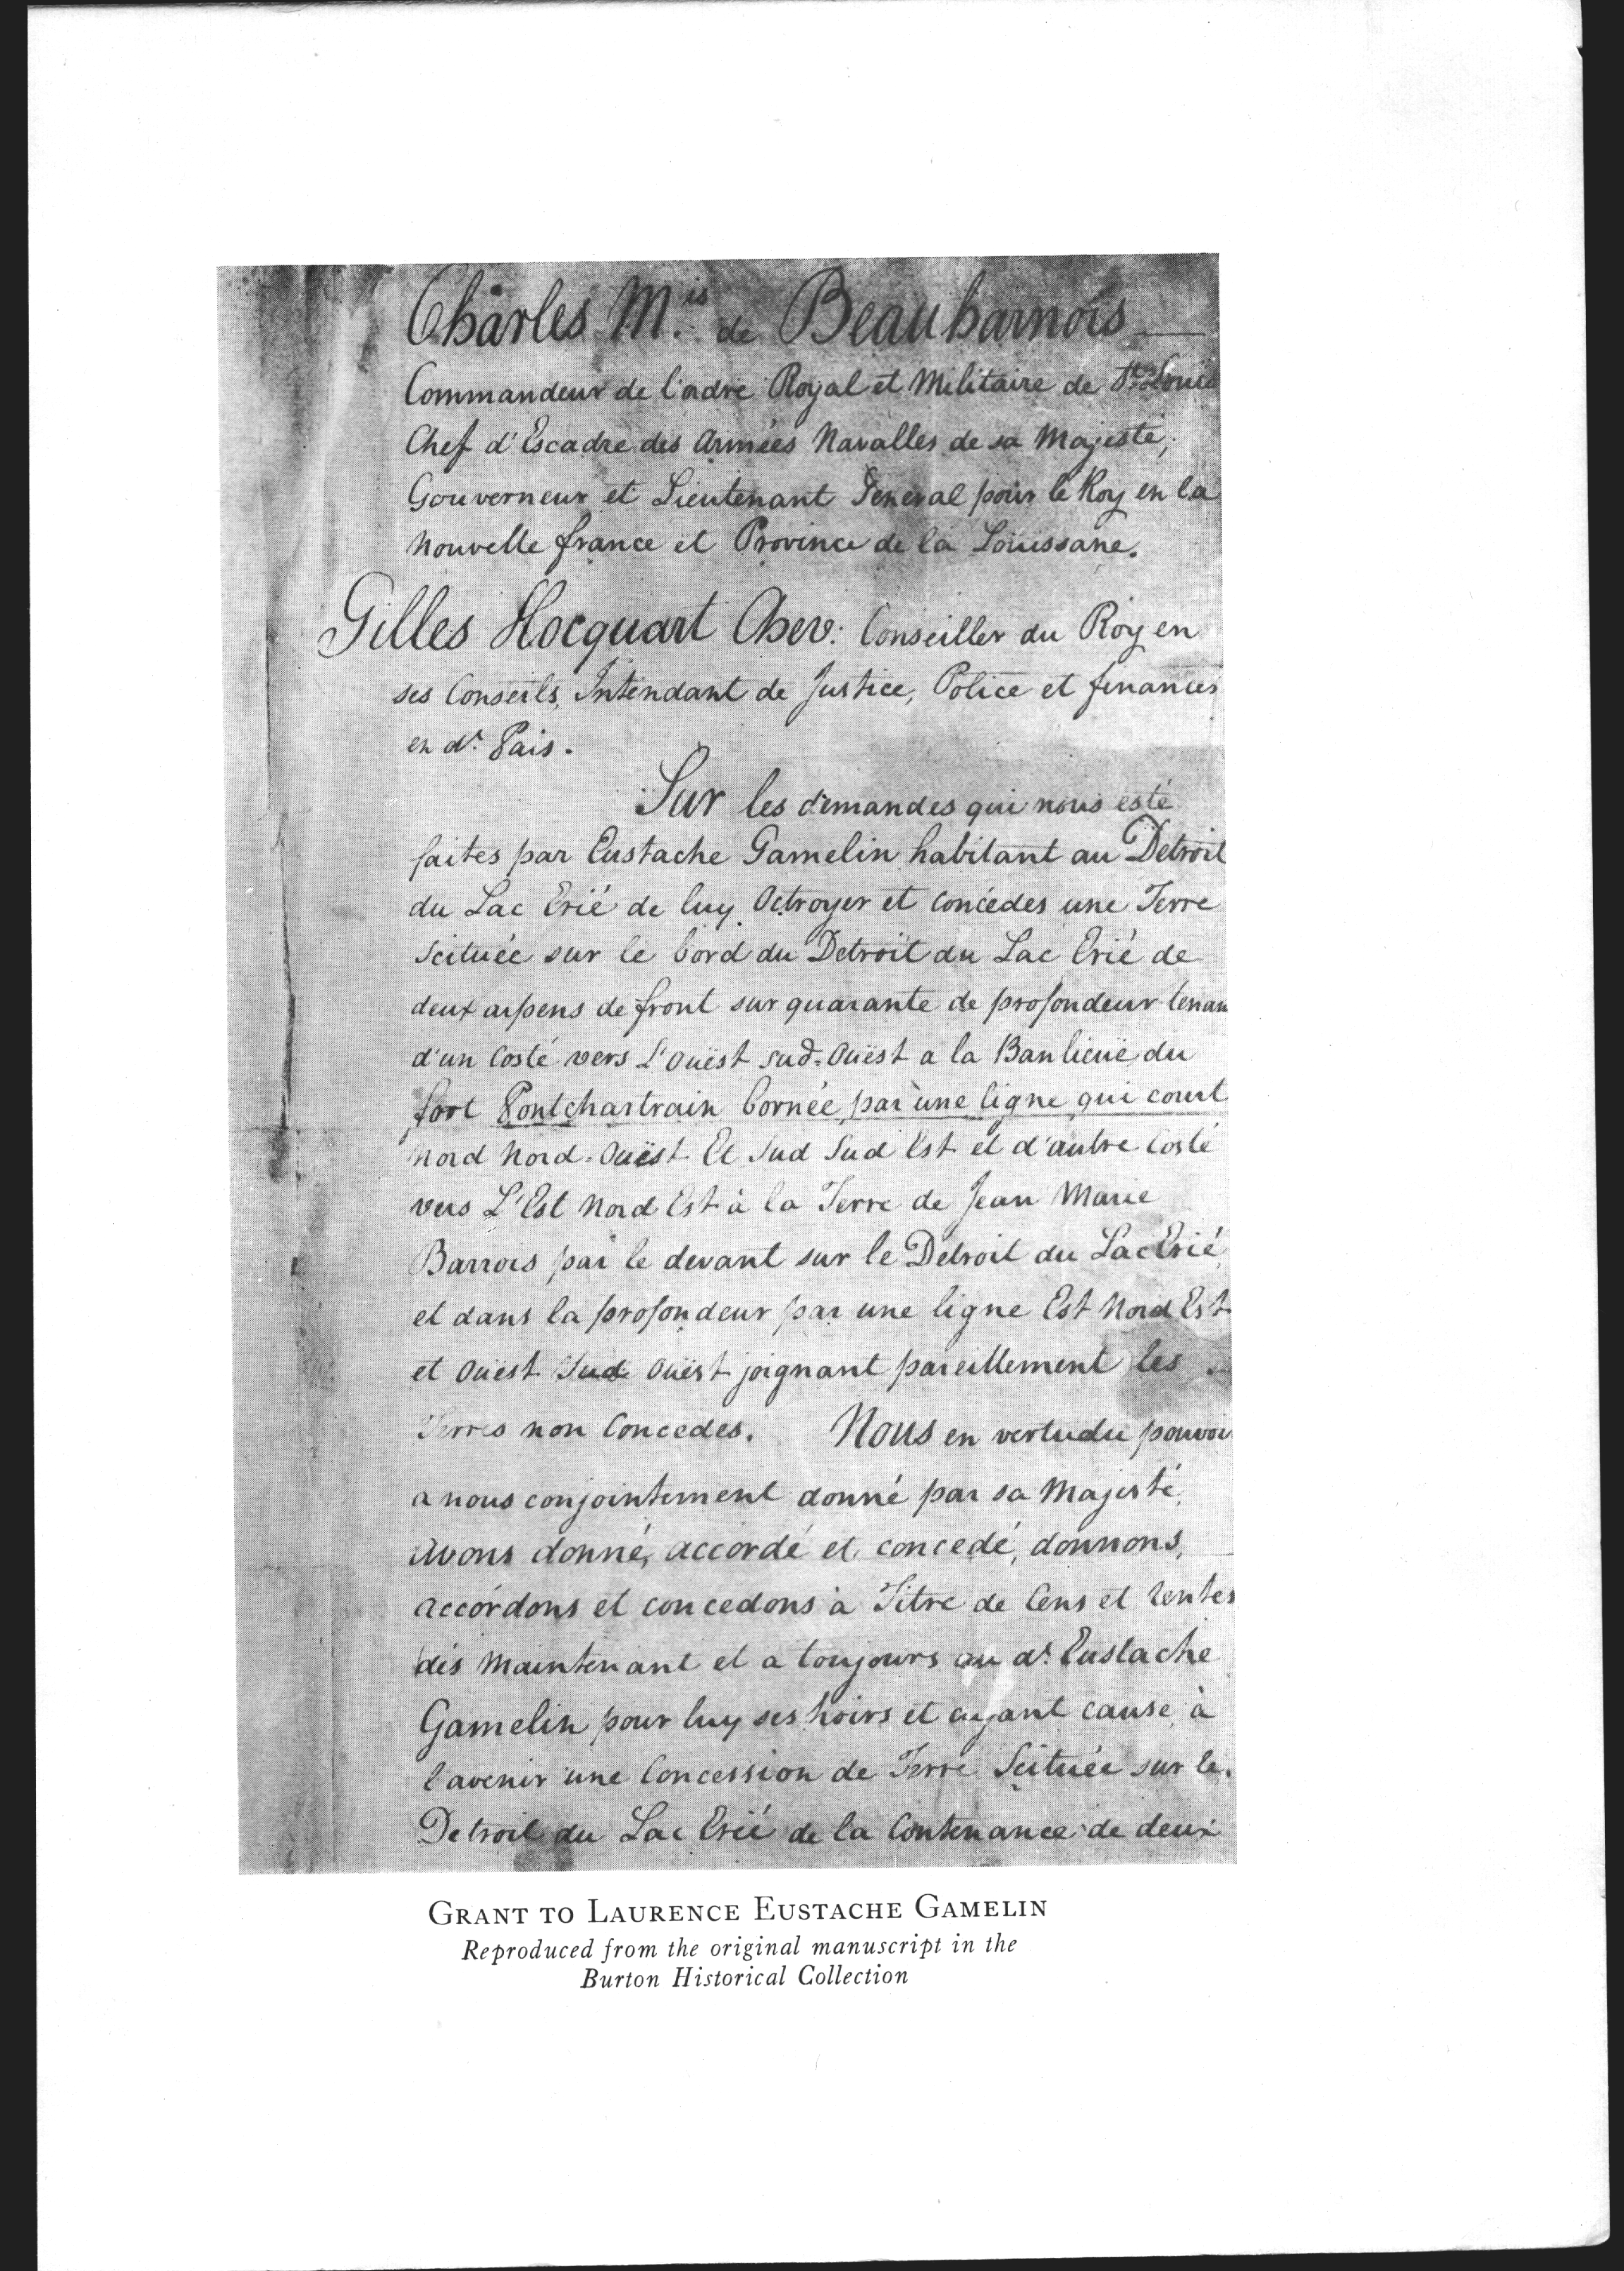 Charles M.is de Beauharnois
Commandeur de l'ordre Royal et Militaire de St. Louis
Chef d'Escadre des Armées Navalles de sa Majesté,
Gouverneur et Lieutenant General pour le Roy en la
Nouvelle france et Province de la Louissane.
Gilles Hocquart Chev: Conseiller du Roy en
ses Conseils, Intendant de Justice, Police et finances
en dt. Pais.
Sur les demandes qui nous esté
faites par Eustache Gamelin habitant au Detroit
du Lac Erié de luy Octroyer et concédes une Terre
scituée sur le bord du Detroit du Lac Erié de
deux arpens de front sur quarante de profondeur tenan
d'un Costé vers L'Ouëst sud-Ouëst a la Banlieuë du
fort Pontchartrain bornée par une ligne qui court
Nord Nord-Ouëst Et Sud Sud Est et d'autre Costé
vers L'Est Nord Est à la Terre de Jean Marie
Barrois par le devant sur le Detroit du Lac Erié
et dans la profondeur par une ligne Est Nord Est
et Ouëst Sud Ouëst joignant pareillement les
Terres non Concedes. Nous en vertu du pouvoir
a nous conjointement donné par sa Majesté,
Avons donné, accordé et concedé, donnons,
accordons et concedons à Titre de Cens et rentes
dés Maintenant et a toujours au dt. Eustache
Gamelin pour luy ses hoirs et ayant cause à
l'avenir une Concession de Terre Scituée sur le
Detroit du Lac Erié de la Contenance de deux
GRANT TO LAURENCE EUSTACHE GAMELIN
Reproduced from the original manuscript in the
Burton Historical Collection